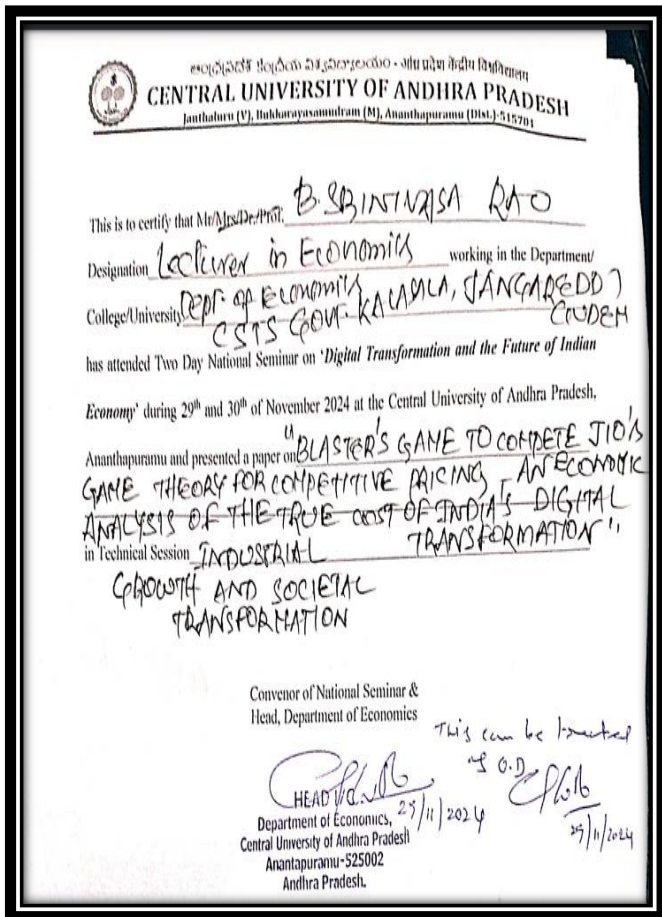 ఆంధ్రప్రదేశ్ కేంద్రీయ విశ్వవిద్యాలయం - आंध्र प्रदेश केंद्रीय विश्वविद्यालय
CENTRAL UNIVERSITY OF ANDHRA PRADESH
Janthaluru (V), Bukkarayasamudram (M), Ananthapuramu (Dist.)-515701
This is to certify that Mr/Mrs/Dr./Prof. B. SRINIVASA RAO
Designation Lecturer in Economics working in the Department/
College/University Dept. of Economics
CSTS GOVT. KALASALA, JANGAREDDY
GUDEM
has attended Two Day National Seminar on 'Digital Transformation and the Future of Indian
Economy' during 29th and 30th of November 2024 at the Central University of Andhra Pradesh,
Ananthapuramu and presented a paper on "BLASTER'S GAME TO COMPETE JIO'S
GAME THEORY FOR COMPETITIVE PRICING - AN ECONOMIC
ANALYSIS OF THE TRUE COST OF INDIA'S DIGITAL
TRANSFORMATION"
in Technical Session INDUSTRIAL
GROWTH AND SOCIETAL
TRANSFORMATION
Convenor of National Seminar &
Head, Department of Economics
This can be treated
as O.D
HEAD
29/11/2024
Department of Economics,
Central University of Andhra Pradesh
Anantapuramu-525002
Andhra Pradesh.
29/11/2024